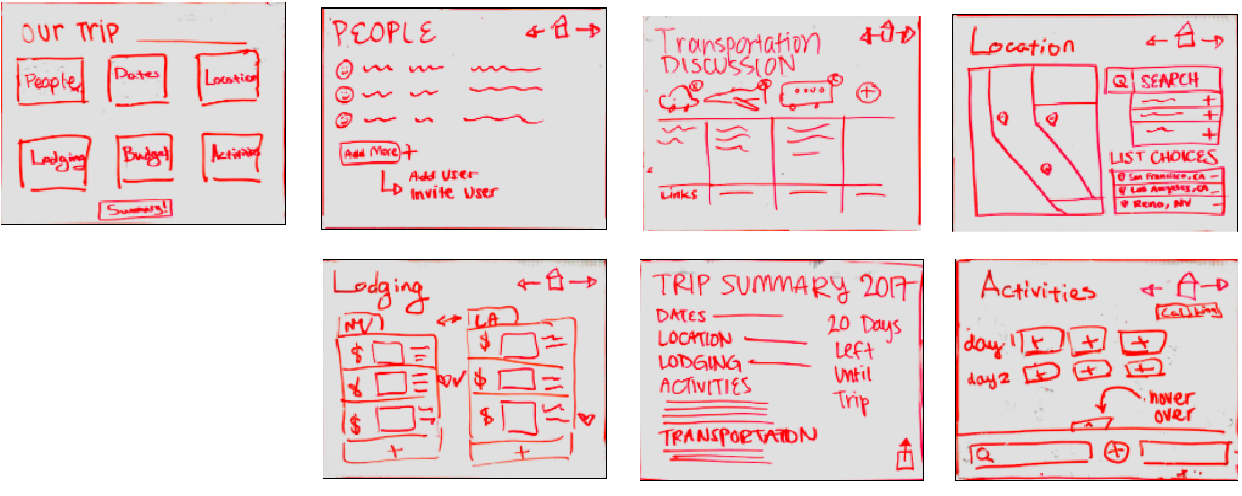 OUR TRIP
People
Dates
Location
Lodging
Budget
Activities
Summary!
PEOPLE
Add More +
Add User
Invite User
Transportation
DISCUSSION
Links
Location
Q SEARCH
+
+
+
LIST CHOICES
San Francisco, CA -
Los Angeles, CA -
Reno, NV -
Lodging
NV
LA
$ $
$ $
$ $
+ +
TRIP SUMMARY 2017
DATES
LOCATION
LODGING
ACTIVITIES
TRANSPORTATION
20 Days
Left
Until
Trip
Activities
day 1 + + +
day 2 + + +
hover
over
+